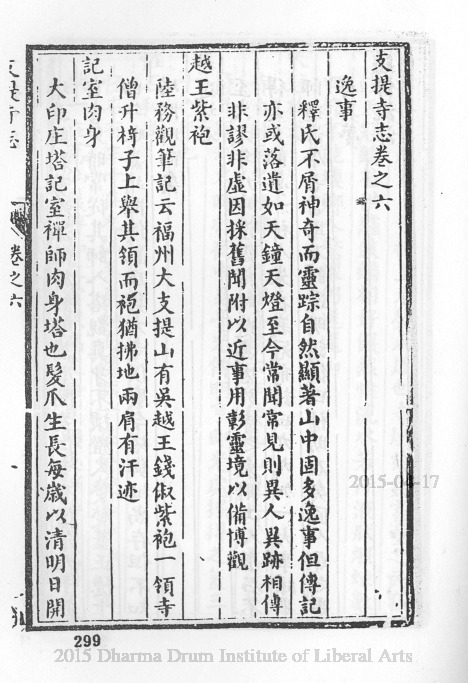 支提寺志卷之六
逸事
釋氏不屑神奇而靈踪自然顯著山中固多逸事但傳記
亦或落遺如天鐘天燈至今常聞常見則異人異跡相傳
非謬非虛因採舊聞附以近事用彰靈境以備博觀
越王紫袍
陸務觀筆記云福州大支提山有吳越王錢俶紫袍一領寺
僧升椅子上舉其領而袍猶拂地兩肩有汗迹
記室肉身
大印庄塔記室禪師肉身塔也髮爪生長每歲以清明日開
支提寺志
卷之六
2015-04-17
299
2015 Dharma Drum Institute of Liberal Arts